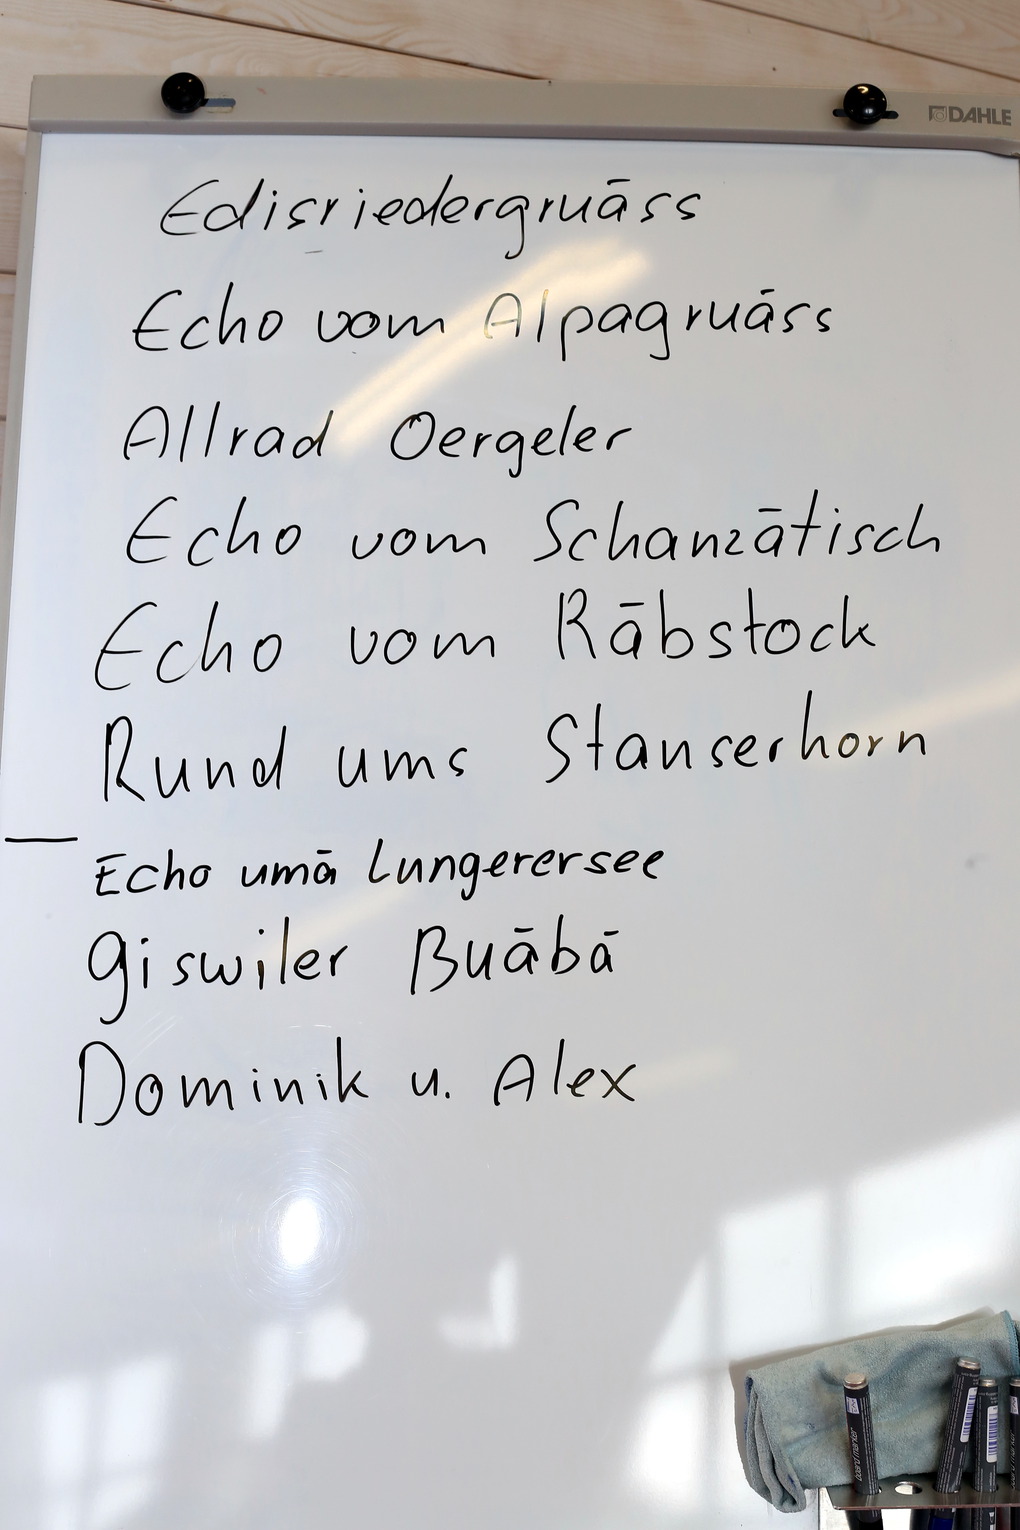 DAHLE
Edisriedergruāss
Echo vom Alpagruāss
Allrad Oergeler
Echo vom Schanzātisch
Echo vom Rābstock
Rund ums Stanserhorn
Echo umā Lungerersee
Giswiler Buābā
Dominik u. Alex
board marker